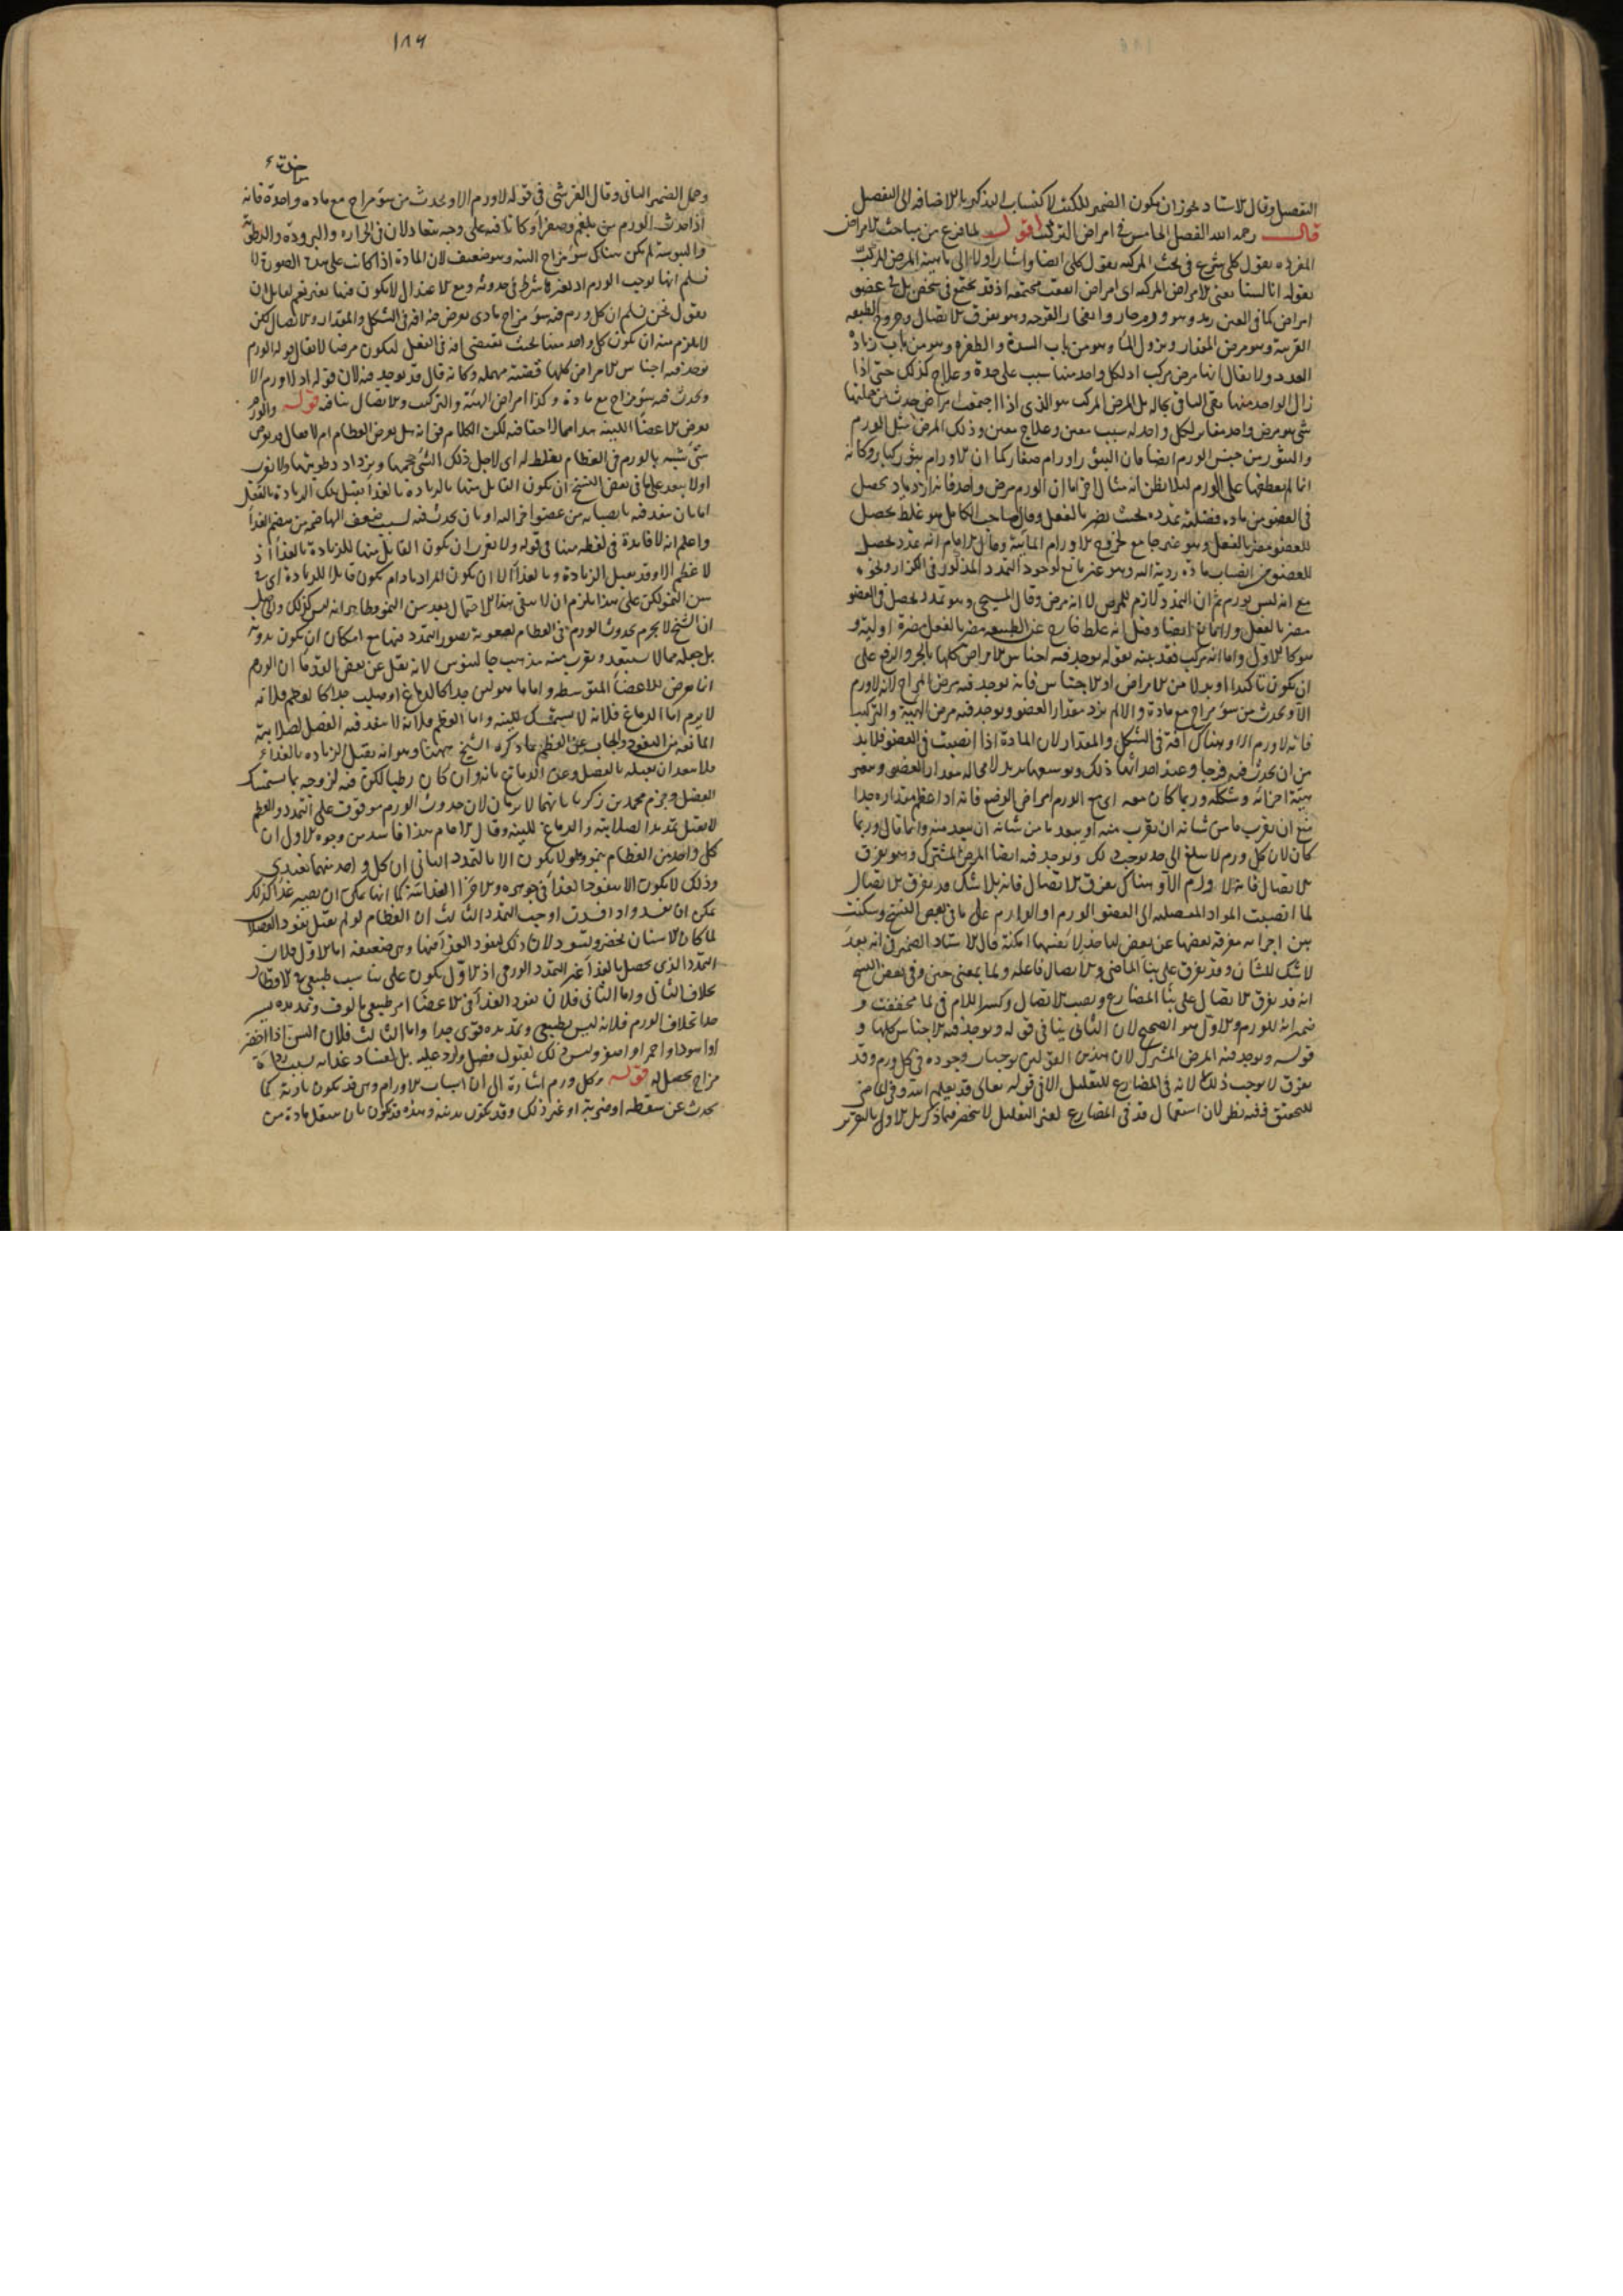 التفصيل وقال الاستاد يجوز ان يكون الضمير للكل لاكتساب التذكير بالاضافة الى التفصيل
قال رحمه الله الفصل الخامس في امراض التركيب اقول لما فرغ من مباحث الامراض
المفرده بقول كلى شرع في بحث المركبه بقول كلى ايضا واشار اولا الى ماهية المرض المركب
بقوله انا لسنا نعنى بالامراض المركبه اى امراض اتفقت مجتمعه اذ قد يجتمع في شخص بل في عضو
امراض كما في العين رمد وهو ورم حار وانفجار القرحه وهو تفرق الاتصال وخروج الطبقه
القرنية وهو مرض المقدار ونزول الماء وهو من باب السدة والظفره وهو من باب زيادة
العدد ولا يقال انها مرض مركب اذ لكل واحد منها سبب على حدة وعلاج كذلك حتى اذا
زال الواحد منها بقى الباقى بحاله بل المرض المركب هو الذى اذا اجتمعت امراض حدث من جملتها
شئ هو مرض واحد مغاير لكل واحد له سبب معين وعلاج معين وذلك المرض مثل الورم
والبثور من جنس الورم ايضا فان البثور اورام صغار كما ان الاورام بثور كبار وكانه
انما لم يعطفها على الورم لئلا يظن انه مثال آخر اما ان الورم مرض واحد فانه ازدياد يحصل
في العضو من ماده فضلية تمدده بحيث يضر بالفعل وقال صاحب الكامل هو غلظ يحصل
للعضو مضر بالفعل وهو غير جامع لخروج الاورام المائية وقال الامام انه تمدد يحصل
للعضو من انصباب مادة ردية اليه وهو غير مانع لوجود التمدد المذكور في الكزاز ونحوه
مع انه ليس بورم ثم ان التمدد لازم للمرض لا انه مرض وقال المسيحى وهو تمدد يحصل في العضو
مضر بالفعل وقيل انه غلظ خارج عن الطبيعه مضر بالفعل مضرة اولية و
هو كالاول واما انه مركب فقد بينه بقوله يوجد فيه اجناس الامراض كلها بالجر والرفع على
ان يكون تاكيدا او بدلا من الامراض او الاجناس فانه يوجد فيه مرض المزاج لانه لا ورم
الا ويحدث من سوء مزاج مع مادة والا لم يزد مقدار العضو ويوجد فيه مرض الهيئة والتركيب
فانه لا ورم الا وهناك آفة في الشكل والمقدار لان المادة اذا انصبت في العضو فلابد
من ان يحدث فيه فرجا وعند احداثها ذلك وتوسعها يزيد لا محاله مقدار العضو ويتغير
هيئة اجزائه وشكله وربما كان معه اى مع الورم امراض الوضع فانه اذا عظم مقداره جدا
منع ان يقرب ما من شانه ان يقرب منه او يبعد ما من شانه ان يبعد منه وانما قال وربما
كان لان كل ورم لا يبلغ الى حد يوجب ذلك ويوجد فيه ايضا المرض المشترك وهو تفرق
الاتصال فانه لا ورم الا وهناك تفرق الاتصال فانه بلا شك قد تفرق الاتصال
لما انصبت المواد الفضلية الى العضو الورم او الوارم على ما في بعض النسخ وسكنت
بين اجزائه مفرقة بعضها عن بعض لياخذ لانفسها امكنة قال الاستاد الضمير في انه بعد
لا شك للشان وقد تفرق على بناء الماضى والاتصال فاعله ولما بمعنى حين وفي بعض النسخ
انه قد يفرق الاتصال على بناء المضارع ونصب الاتصال وكسر اللام في لما مخففة و
ضمير انه للورم والاول هو الصحيح لان الثانى ينافى قوله ويوجد فيه الاجناس كلها و
قوله ويوجد فيه المرض المشترك لان هذين القولين يوجبان وجوده في كل ورم وقد
يفرق لا يوجب ذلك لانه في المضارع للتقليل الا في قوله تعالى قد يعلم الله وفي الماضى
للتحقيق ففيه نظر لان استعمال قد في المضارع لغير التقليل لا ينحصر فيما ذكر بل الاول بالتقرير
١٨٩
وحمل الضمير الثانى وقال القرشى في قوله لا ورم الا ويحدث من سوء مزاج مع ماده واحدة فانه
اذا حدث الورم من بلغم وصفراء وكانا فيه على وجه يتعادلان في الحراره والبرودة والرطوبة
واليبوسة لم يكن هناك سوء مزاج البته وهو ضعيف لان المادة اذا كانت على هذه الصورة لا
نسلم انها توجب الورم اذ تغيرها شرط في حدوثه ومع الاعتدال لا يكون فيها تغير نعم لقائل ان
يقول نحن نسلم ان كل ورم فيه سوء مزاج مادى يعرض منه آفة في الشكل والمقدار والاتصال لكن
لا يلزم منه ان يكون كل واحد منها بحيث يقتضى آفة في الفعل ليكون مرضا لا يقال قوله الورم
يوجد فيه اجناس الامراض كلها قضية مهمله وكانه قال قد يوجد فيه لان قوله اذ لا ورم الا
ويحدث فيه سوء مزاج مع مادة وكذا امراض الهيئة والتركيب والاتصال ينافيه قوله والورم
يعرض للاعضاء اللينة هذا مما لا خفا فيه لكن الكلام في انه هل يعرض للعظام ام لا فقال قد يعرض
شئ شبه بالورم في العظام يغلظ له اى لاجل ذلك الشئ حجمها ويزداد رطوبتها ولا يغرب
اولا يبعد على ما في بعض النسخ ان يكون القابل منها بالزيادة بالغذاء يقبل تلك الزيادة بالفضل
اما بان ينفذ فيه بانصبابه من عضو آخر اليه او بان يحدث فيه لسبب ضعف الهاضمه من هضم الغذاء
واعلم انه لا فائدة في لفظه منها في قوله ولا يغرب ان يكون القابل منها للزيادة بالغذاء اذ
لا عظم الا وقد يقبل الزيادة وبالغذاء الا ان يكون المراد مادام يكون قابلا للزيادة اى في
سن النمو لكن على هذا يلزم ان لا يبقى هذا الاحتمال بعد سن النمو وظاهر انه ليس كذلك والحاصل
ان الشيخ لا يجزم بحدوث الورم في العظام لصعوبة تصور التمدد فيها مع امكان ان يكون بدونه
بل جعله مما لا يستبعد ويقرب منه مذهب جالينوس لانه نقل عن بعض القدماء ان الورم
انما يعرض للاعضاء المتوسطه واما ما هو لين جدا كالدماغ او صلب جدا كالعظم فلا
لا يرم اما الدماغ فلانه لا يستمسك للينه واما العظم فلانه لا ينفذ فيه الفضل لصلابته
المانعه من النفوذ والجواب عن العظم ما ذكره الشيخ ههنا وهو انه يقبل الزياده بالغذاء
فلا يبعد ان يقبله بالفضل وعن الدماغ بانه وان كان رطبا لكن فيه لزوجه بها يستمسك
الفضل وجزم محمد بن زكريا بانهما لا يرمان لان حدوث الورم موقوف على التمدد والعظم
لا يقبل تمددا لصلابته والدماغ للينه وقال الامام هذا فاسد من وجوه الاول ان
كل واحد من العظام ينمو والنمو لا يكون الا بالتمدد الثانى ان كل واحد منهما يغتذى
وذلك لا يكون الا بنفوذ الغذاء في جوهره والاجزاء الغذائية كما انها يمكن ان يصير غذاء كذلك
يمكن ان تفسد واذا فسدت اوجبت التمدد الثالث ان العظام لو لم تقبل نفوذ الفضلات
لما كان الاسنان تخضر وتسود لان ذلك لنفوذ الفضل فيها وهى ضعيفه اما الاول فلان
التمدد الذى يحصل بالغذاء غير التمدد الورمى اذ الاول يكون على تناسب طبيعى في الاقطار
بخلاف الثانى واما الثانى فلان نفوذ الغذاء في الاعضاء امر طبيعى مالوف وتمديده يسير
جدا بخلاف الورم فلانه ليس بطبيعى وتمديده قوى جدا واما الثالث فلان السن اذا اخضر
او اسود او احمر او اصفر وليس ذلك لقبول فضل وارد عليه بل لفساد غذائه بسبب رداءة
مزاج يحصل له قوله وكل ورم اشارة الى ان اسباب الاورام وهى قد يكون بادية كما
يحدث عن سقطه او ضربة او غير ذلك وقد يكون بدنية وهذه قد يكون بان ينتقل مادة من